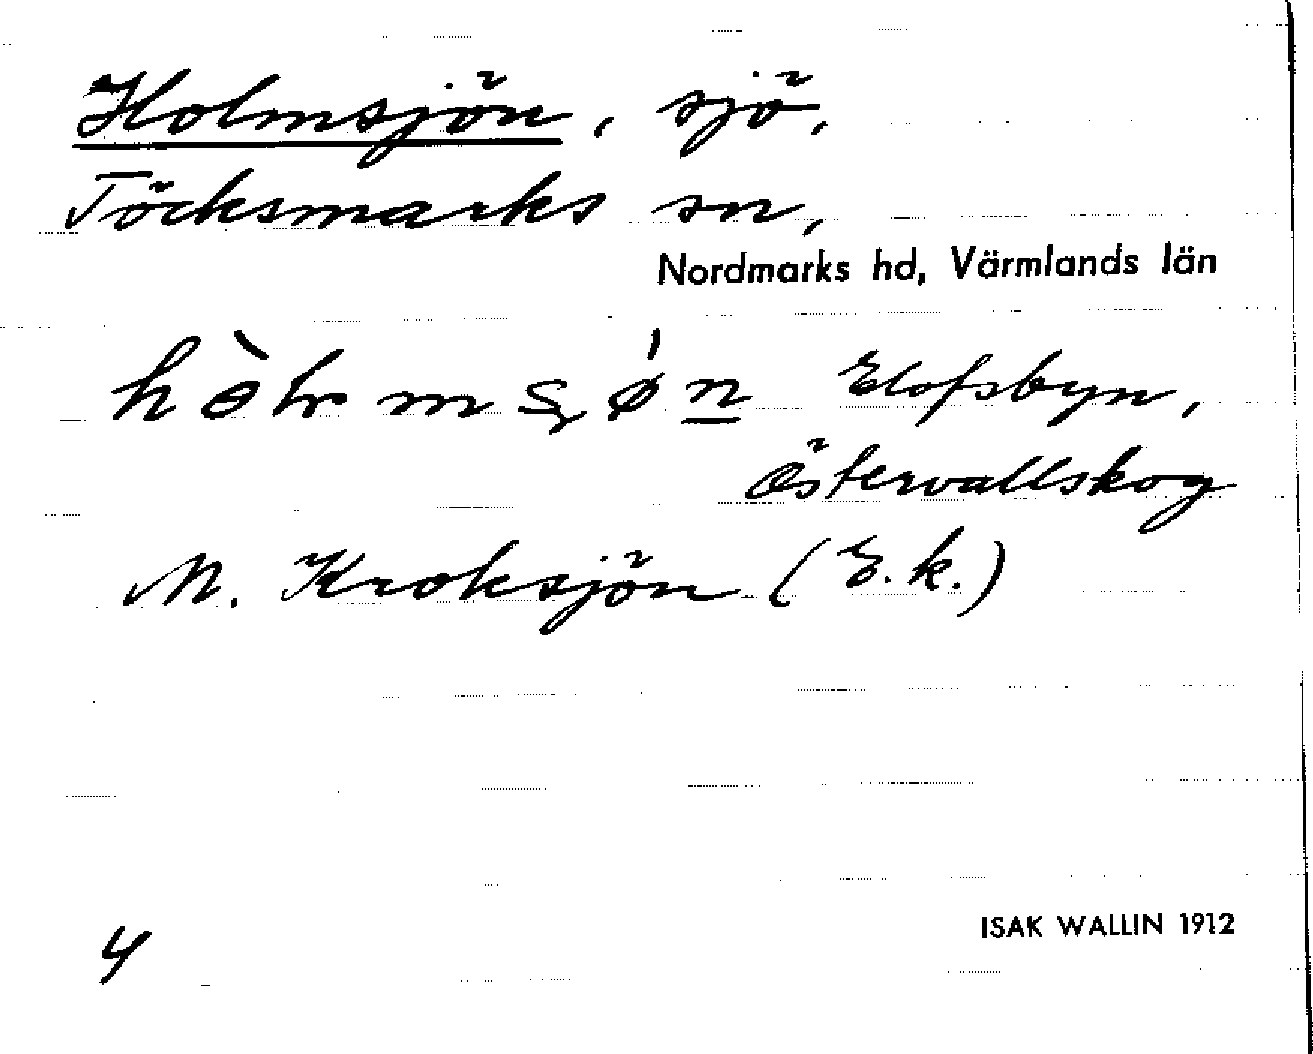 Holmsjön, sjö,
Töcksmarks sn,
Nordmarks hd, Värmlands län
Elofsbyn,
Östervallskog
M. Kroksjön (E.k.)
4
ISAK WALLIN 1912